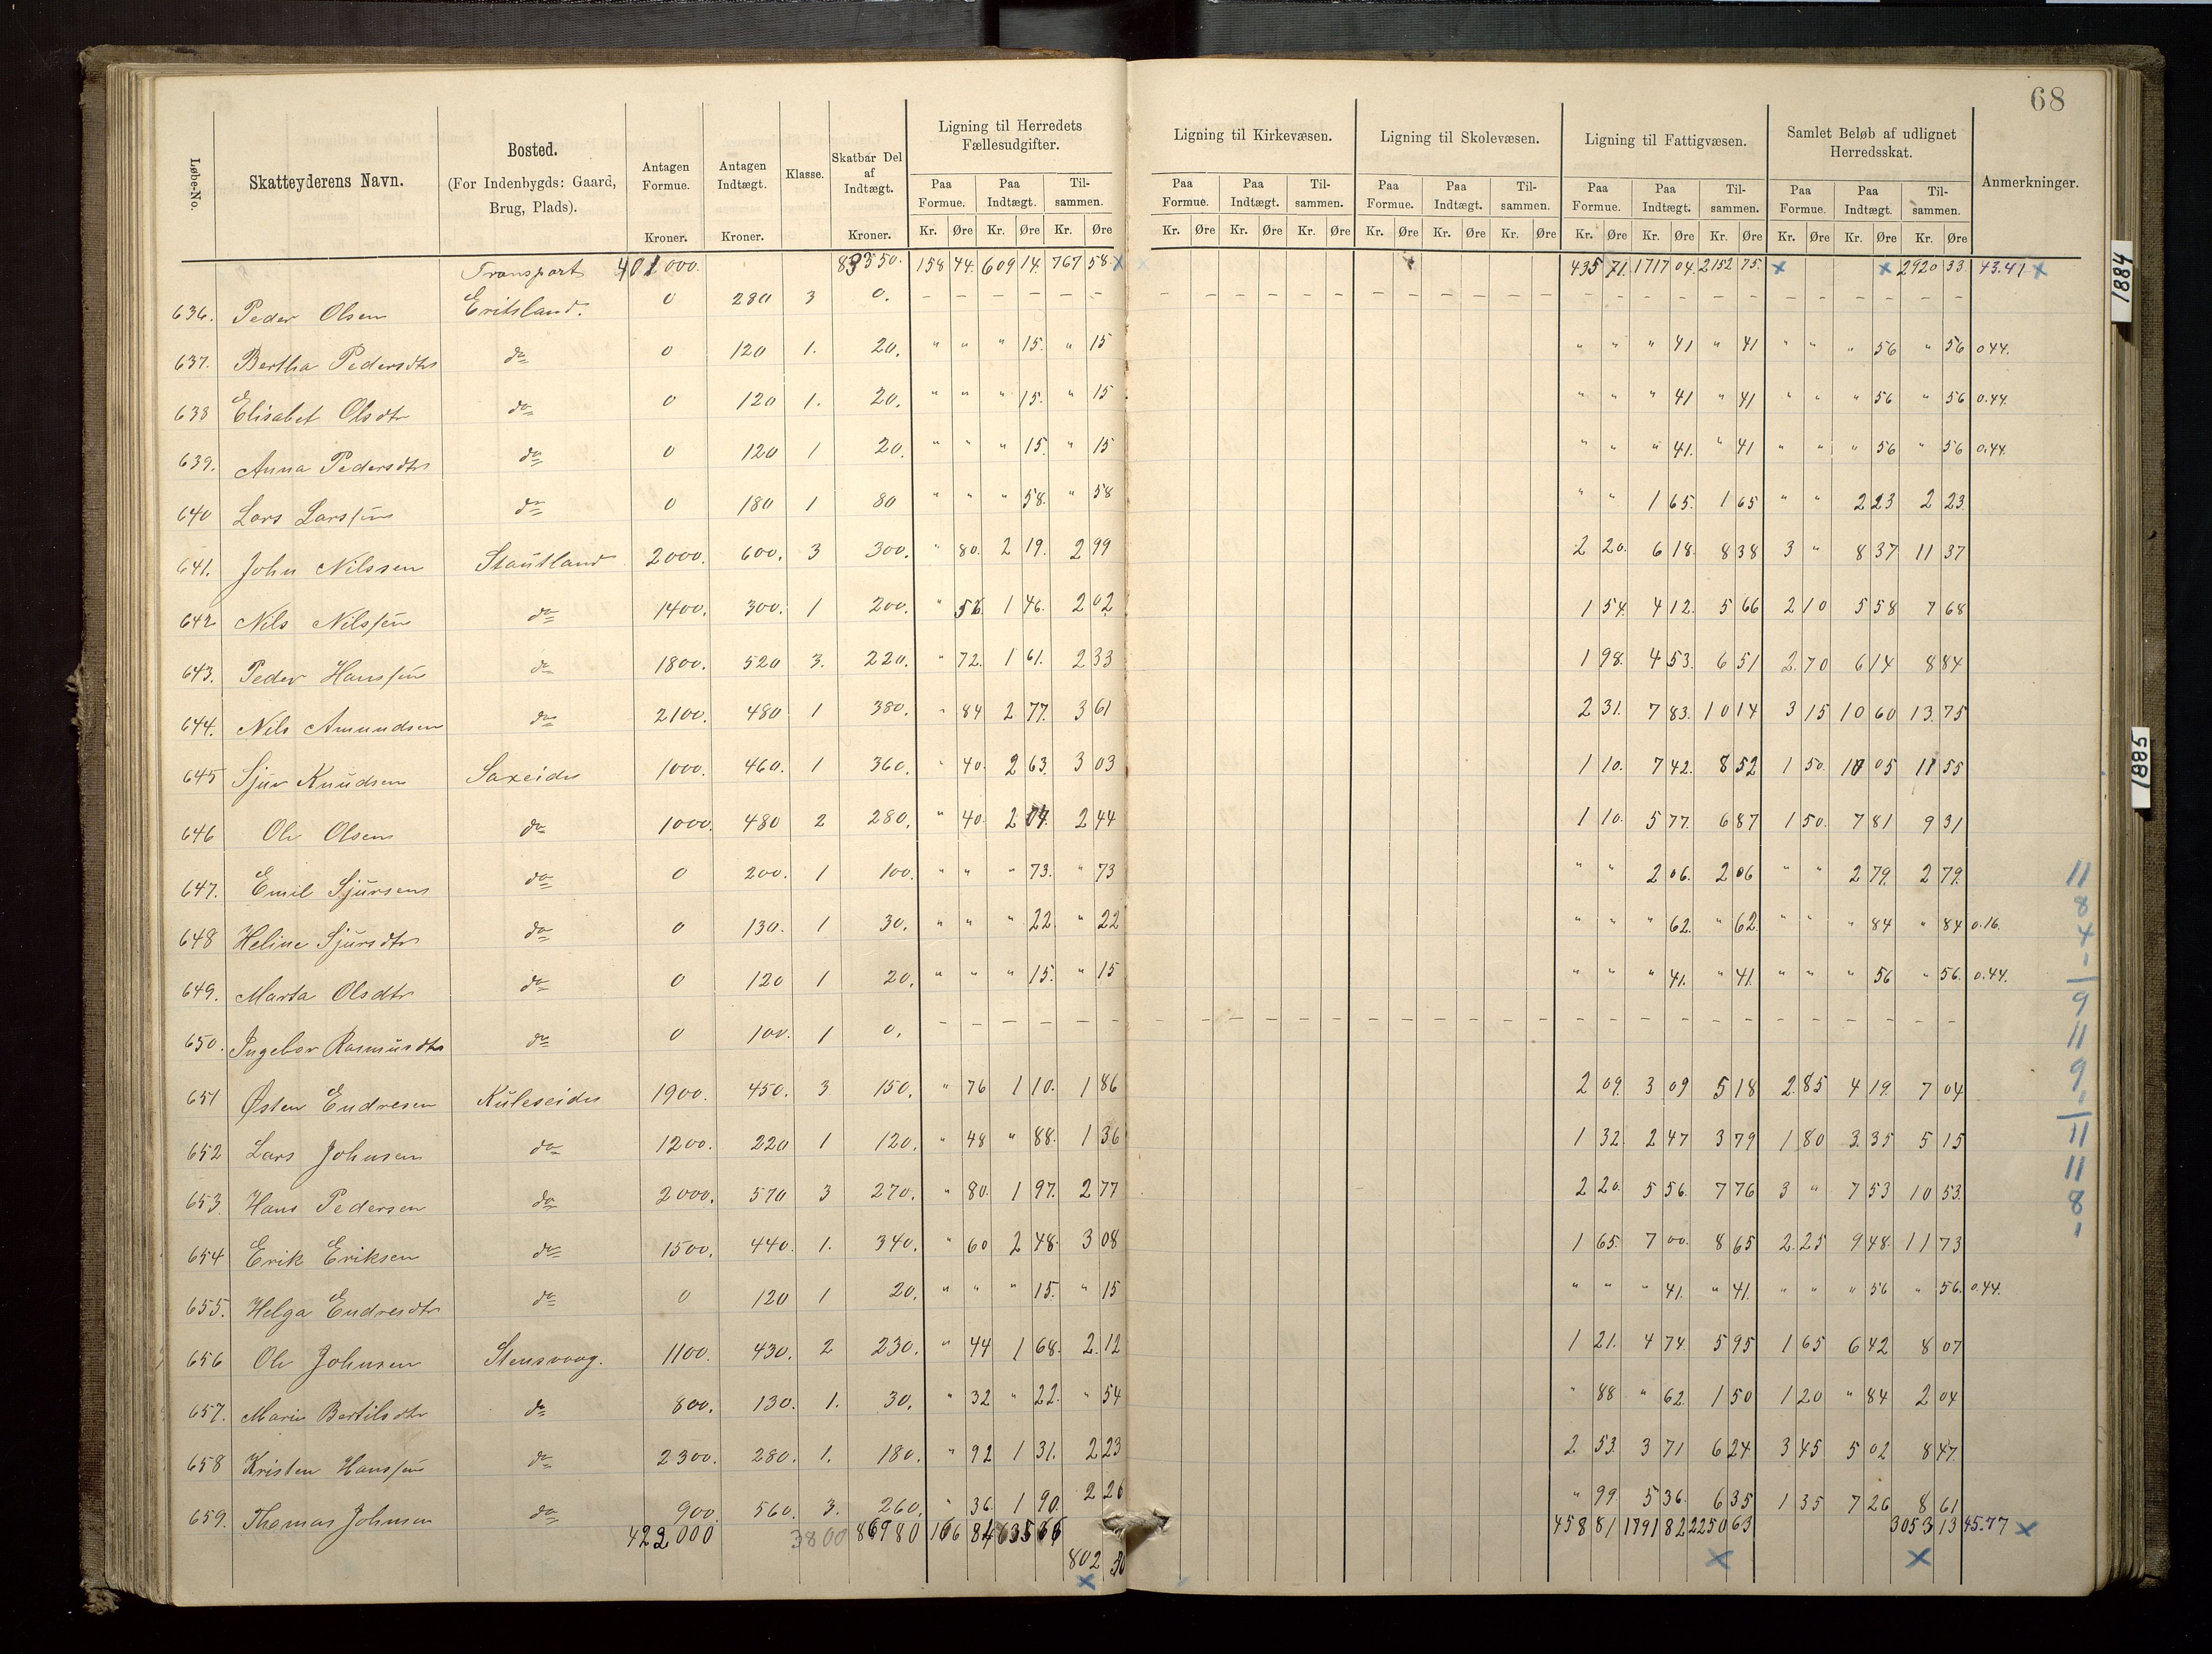 68
Løbe-No. Skatteyderens Navn. Bosted. (For Indenbygds: Gaard, Brug, Plads). Antagen Formue. Kroner. Antagen Indtægt. Kroner. Klasse. Skatbar Del af Indtægt. Kroner. Ligning til Herredets Fællesudgifter. Ligning til Kirkevæsen. Ligning til Skolevæsen. Ligning til Fattigvæsen. Samlet Beløb af udlignet Herredsskat. Anmerkninger.
Paa Formue. Paa Indtægt. Tilsammen. Paa Formue. Paa Indtægt. Tilsammen. Paa Formue. Paa Indtægt. Tilsammen. Paa Formue. Paa Indtægt. Tilsammen. Paa Formue. Paa Indtægt. Tilsammen.
Kr. Øre Kr. Øre Kr. Øre Kr. Øre Kr. Øre Kr. Øre Kr. Øre Kr. Øre Kr. Øre Kr. Øre Kr. Øre Kr. Øre Kr. Øre Kr. Øre Kr. Øre
Transport 401000. 83550. 158 44. 609 14. 767 58. x 435 71. 1717 04. 2152 75. x x 2920 33. 43.41 x
636. Peder Olsen Eritsland. 0 280 3 0. – – – – – – – – – – – – – – – – – – – – – – – – – – – – – –
637. Bertha Pedersdtr do 0 120 1. 20. " " " 15. " 15 " " " 41 " 41 " " " 56 " 56 0 44.
638 Elisabet Olsdtr do 0 120 1. 20. " " " 15. " 15 " " " 41 " 41 " " " 56 " 56 0.44.
639. Anna Pedersdtr do 0 120 1 20. " " " 15. " 15 " " " 41. " 41 " " " 56 " 56 0.44.
640 Lars Larssen do 0 180 1 80 " " " 58. " 58 " " 1 65. 1 65 " " 2 23 2 23.
641. John Nilssen Stautland 2000. 600. 3 300. " 80. 2 19. 2 99 2 20. 6 18. 8 38 3 " 8 37 11 37
642 Nils Nilssen do 1400. 300. 1 200. " 56. 1 46. 2 02 1 54. 4 12. 5 66 2 10 5 58 7 68
643. Peder Hanssen do 1800. 520 3. 220. " 72. 1 61. 2 33 1 98. 4 53. 6 51 2 70 6 14 8 84
644. Nils Amundsen do 2100. 480 1 380. " 84 2 77. 3 61 2 31. 7 83. 10 14 3 15 10 60 13 75
645 Sjur Knudsen Saxeide 1000. 460. 1 360. " 40. 2 63. 3 03 1 10. 7 42. 8 52 1 50. 10 05 11 55
646 Ole Olsen do 1000. 480 2 280. " 40. 2 04. 2 44 1 10. 5 77. 6 87 1 50. 7 81 9 31
647. Emil Sjursen do 0 200. 1 100. " " " 73. " 73 " " 2 06. 2 06 " " 2 79. 2 79.
648 Heline Sjursdtr do 0 130. 1 30. " " " 22. " 22 " " " 62. " 62. " " " 84 " 84 0.16.
649. Marta Olsdtr do 0 120 1 20. " " " 15. " 15 " " " 41. " 41. " " " 56 " 56. 0.44.
650. Ingebor Rasmusdtr do 0 100. 1 0. – – – – – – – – – – – – – – – – – – – – – – – – – – – – – –
651 Østen Endresen Kuleseide 1900. 450. 3 150. " 76 1 10. 1 86 2 09. 3 09 5 18 2 85 4 19. 7 04
652 Lars Johnsen do 1200. 220 1 120. " 48 " 88. 1 36 1 32. 2 47 3 79 1 80 3 35 5 15
653. Hans Pedersen do 2000. 570 3 270. " 80. 1 97. 2 77 2 20. 5 56. 7 76 3 " 7 53 10 53.
654 Erik Eriksen do 1500. 440. 1. 340. " 60 2 48. 3 08 1 65. 7 00. 8 65 2 25 9 48. 11 73
655. Helga Endresdtr do 0 120 1 20. " " " 15. " 15 " " " 41. " 41. " " " 56 " 56. 0.44.
656 Ole Johnsen Stensvaag. 1100. 430. 2 230. " 44 1 68. 2 12 1 21. 4 74. 5 95 1 65 6 42 8 07
657. Marie Bertilsdtr do 800. 130. 1. 30. " 32 " 22. " 54 " 88 " 62. 1 50 1 20 " 84 2 04
658 Kristen Hanssen do 2300. 280. 1. 180. " 92 1 31. 2 23 2 53. 3 71 6 24. 3 45 5 02 8 47.
659. Thomas Johnsen do 900. 560. 3. 260. " 36. 1 90. 2 26 " 99. 5 36. 6 35 1 35 7 26 8 61
422000 3800 86980 166 84 635 66 458 81 1791 82 2250 63 3053 13 45.77 x
802 50
x x x
1884
1885
11
8
4
"
9
11
9
"
11
11
8
"